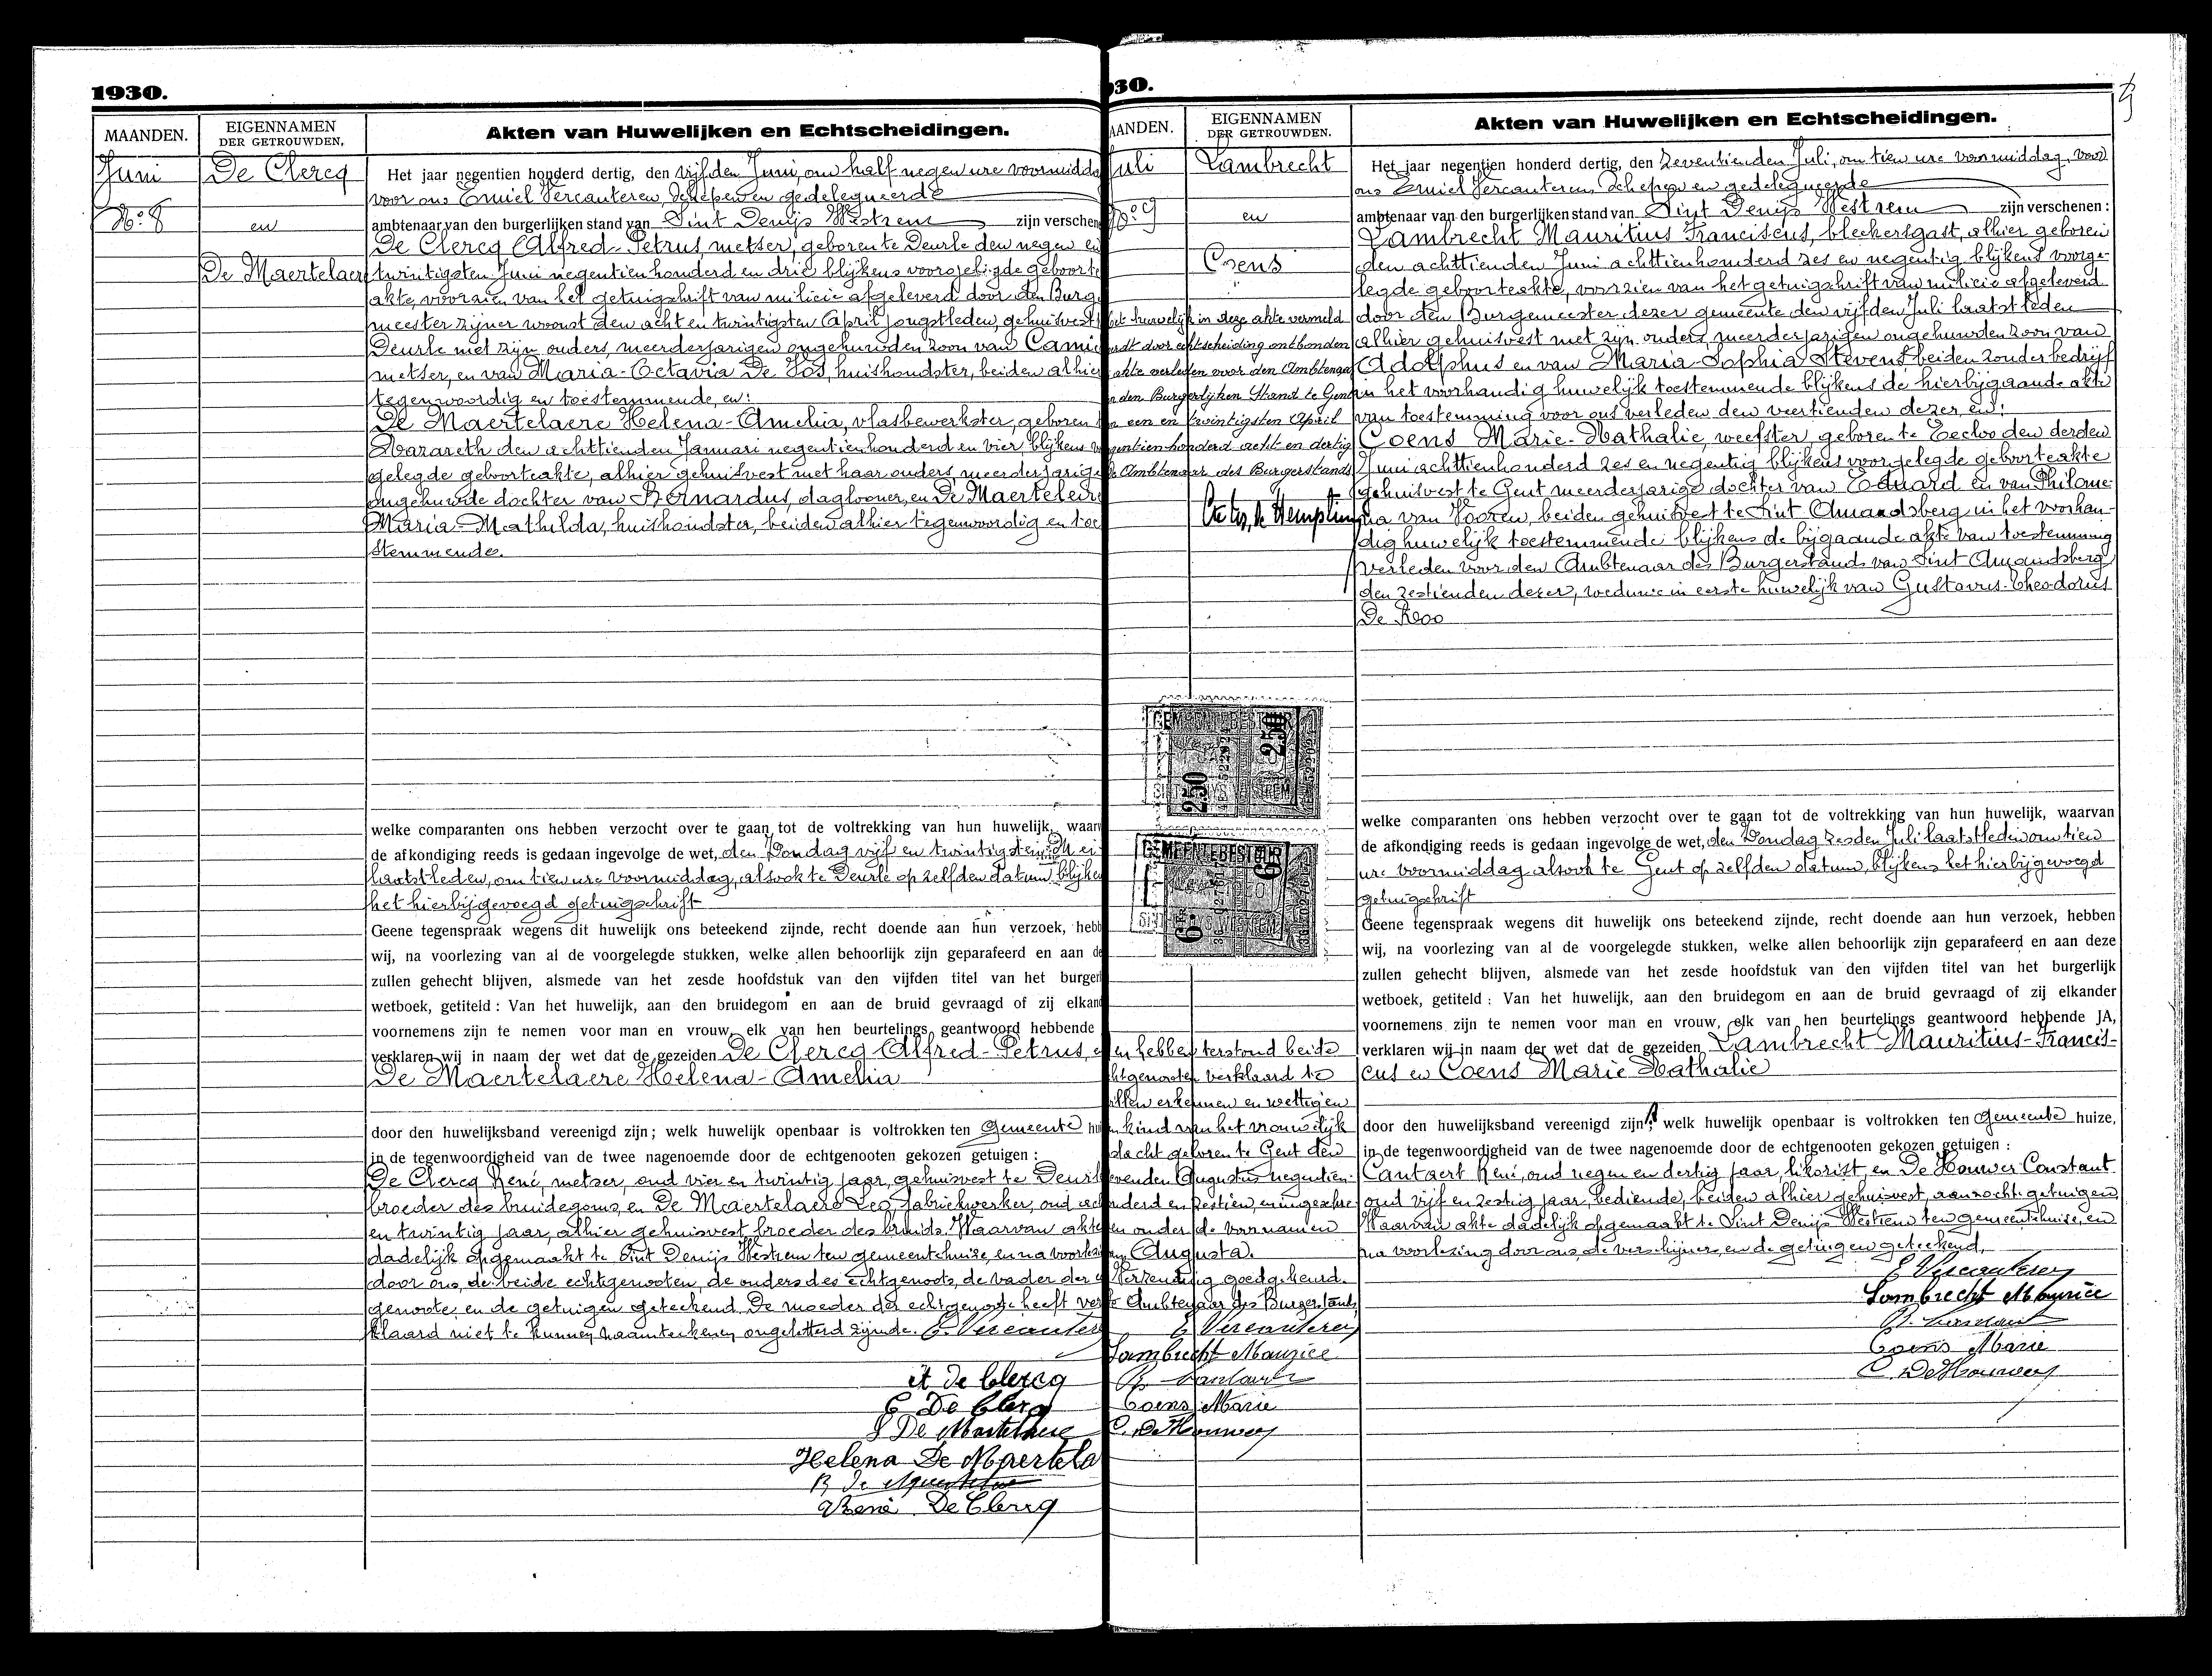 1930.
MAANDEN.
EIGENNAMEN
DER GETROUWDEN.
Akten van Huwelijken en Echtscheidingen.
Juni
No. 8
De Clercq
en
De Maertelaere
Het jaar negentien honderd dertig, den vijfden Juni, om half negen ure voormidda
voor ons Emiel Vercauteren, Schepen en gedelegueerde
ambtenaar van den burgerlijken stand van Sint Denijs Westrem zijn verschen
De Clercq Alfred-Petrus, metser, geboren te Deurle den negen en
twintigsten Juni negentien honderd en drie blijkens voorgelegde geboorte
akte, voorzien van het getuigschrift van milicie afgeleverd door den Burg
meester zijner woonst den acht en twintigsten April jongstleden, gehuisvest
Deurle met zijn ouders, meerderjarigen ongehuwden zoon van Cami
metser, en van Maria-Octavia De Vos, huishoudster, beiden alhier
tegenwoordig en toestemmende, en:
De Maertelaere Helena-Amelia, vlasbewerkster, geboren
Nazareth den achttienden Januari negentienhonderd en vier, blijkens
gelegde geboorteakte, alhier gehuisvest met haar ouders, meerderjarige
ongehuwde dochter van Bernardus, daglooner, en De Maerteleire
Maria-Mathilda, huishoudster, beiden alhier tegenwoordig en toe
stemmende.
welke comparanten ons hebben verzocht over te gaan tot de voltrekking van hun huwelijk, waarv
de afkondiging reeds is gedaan ingevolge de wet, den Zondag vijf en twintigsten Mei
laatstleden, om tien ure voormiddag, alsook te Deurle op zelfden datum, blijken
het hierbijgevoegd getuigschrift
Geene tegenspraak wegens dit huwelijk ons beteekend zijnde, recht doende aan hun verzoek, hebb
wij, na voorlezing van al de voorgelegde stukken, welke allen behoorlijk zijn geparafeerd en aan de
zullen gehecht blijven, alsmede van het zesde hoofdstuk van den vijfden titel van het burgerl
wetboek, getiteld: Van het huwelijk, aan den bruidegom en aan de bruid gevraagd of zij elkand
voornemens zijn te nemen voor man en vrouw, elk van hen beurtelings geantwoord hebbende
verklaren wij in naam der wet dat de gezeiden De Clercq Alfred-Petrus, e
De Maertelaere Helena-Amelia
door den huwelijksband vereenigd zijn; welk huwelijk openbaar is voltrokken ten Gemeente hui
in de tegenwoordigheid van de twee nagenoemde door de echtgenooten gekozen getuigen:
De Clercq René, metser, oud vier en twintig jaar, gehuisvest te Deurl
broeder des bruidegoms, en De Maertelaere Leo, fabriekwerker, oud
en twintig jaar, alhier gehuisvest, broeder des bruids. Waarvan akte
dadelijk opgemaakt te Sint Denijs Westrem ten gemeentehuize, en na voorlezi
door ons, de beide echtgenooten, de ouders des echtgenoots, de vader der
genoote en de getuigen geteekend. De moeder der echtgenoote heeft ver
klaard niet te kunnen naamteekenen ongeletterd zijnde. E. Vercauter
A De Clercq
C De Clercq
Helena De Maertela
René De Clercq
30.
AANDEN.
EIGENNAMEN
DER GETROUWDEN.
Akten van Huwelijken en Echtscheidingen.
Juli
No. 9
Lambrecht
en
Coens
het huwelijk in deze akte vermeld
werdt door echtscheiding ontbonden
akte verleden voor den Ambtenaar
den Burgerlijken Stand te Gent
een en twintigsten April
negentienhonderd acht en dertig
Ambtenaar des Burgerstands
Het jaar negentien honderd dertig, den zeventienden Juli, om tien ure voormiddag, voor
ons Emiel Vercauteren, Schepen en gedelegueerde
ambtenaar van den burgerlijken stand van Sint Denijs Westrem zijn verschenen:
Lambrecht Mauritius Franciscus, bleekersgast, alhier geboren
den achttienden Juni achttienhonderd zes en negentig blijkens voorge-
legde geboorteakte, voorzien van het getuigschrift van milicie afgeleverd
door den Burgemeester dezer gemeente den vijfden Juli laatstleden
alhier gehuisvest met zijn ouders, meerderjarigen ongehuwden zoon van
Adolphus en van Maria-Sophia Stevens, beiden zonder bedrijf
in het voorhandig huwelijk toestemmende blijkens de hierbijgaande akte
van toestemming voor ons verleden den veertienden dezer, en:
Coens Marie-Nathalie, weefster, geboren te Eecloo den derden
Juni achttienhonderd zes en negentig blijkens voorgelegde geboorteakte
gehuisvest te Gent meerderjarige dochter van Eduard en van Philome-
na van Vooren, beiden gehuisvest te Sint Amandsberg in het voorhan-
dig huwelijk toestemmende blijkens de bijgaande akte van toestemming
verleden voor den Ambtenaar des Burgerstands van Sint Amandsberg
den zestienden dezer, weduwe in eerste huwelijk van Gustavus-Theodorus
De Roo
2.50
2.50
GEMEENTEBESTUUR
welke comparanten ons hebben verzocht over te gaan tot de voltrekking van hun huwelijk, waarvan
de afkondiging reeds is gedaan ingevolge de wet, den Zondag zesden Juli laatstleden om tien
ure voormiddag alsook te Gent op zelfden datum, blijkens het hierbijgevoegd
getuigschrift
Geene tegenspraak wegens dit huwelijk ons beteekend zijnde, recht doende aan hun verzoek, hebben
wij, na voorlezing van al de voorgelegde stukken, welke allen behoorlijk zijn geparafeerd en aan deze
zullen gehecht blijven, alsmede van het zesde hoofdstuk van den vijfden titel van het burgerlijk
wetboek, getiteld: Van het huwelijk, aan den bruidegom en aan de bruid gevraagd of zij elkander
voornemens zijn te nemen voor man en vrouw, elk van hen beurtelings geantwoord hebbende JA,
verklaren wij in naam der wet dat de gezeiden Lambrecht Mauritius-Francis-
cus en Coens Marie Nathalie
door den huwelijksband vereenigd zijn; welk huwelijk openbaar is voltrokken ten Gemeente huize,
in de tegenwoordigheid van de twee nagenoemde door de echtgenooten gekozen getuigen:
Cantaert René, oud negen en dertig jaar, likorist, en De Houwer Constant
oud vijf en zestig jaar, bediende, beiden alhier gehuisvest, aanzochte getuigen
Waarvan akte dadelijk opgemaakt te Sint Denijs Westrem ten gemeentehuize, en
na voorlezing door ons, de verschijners en de getuigen geteekend.
E Vercauteren
Lambrecht Maurice
Coens Marie
C. De Houwer
en hebben terstond beide
echtgenooten verklaard te
willen erkennen en wettigen
kind van het vrouwelijk
slacht geboren te Gent den
zevenden Augustus negentien-
honderd en zestien, en ingeschre
en onder de voornamen
Augusta.
Verzending goedgekeurd.
Ambtenaar des Burgerstands
E Vercauteren
Lambrecht Maurice
Coens Marie
C. De Houwer